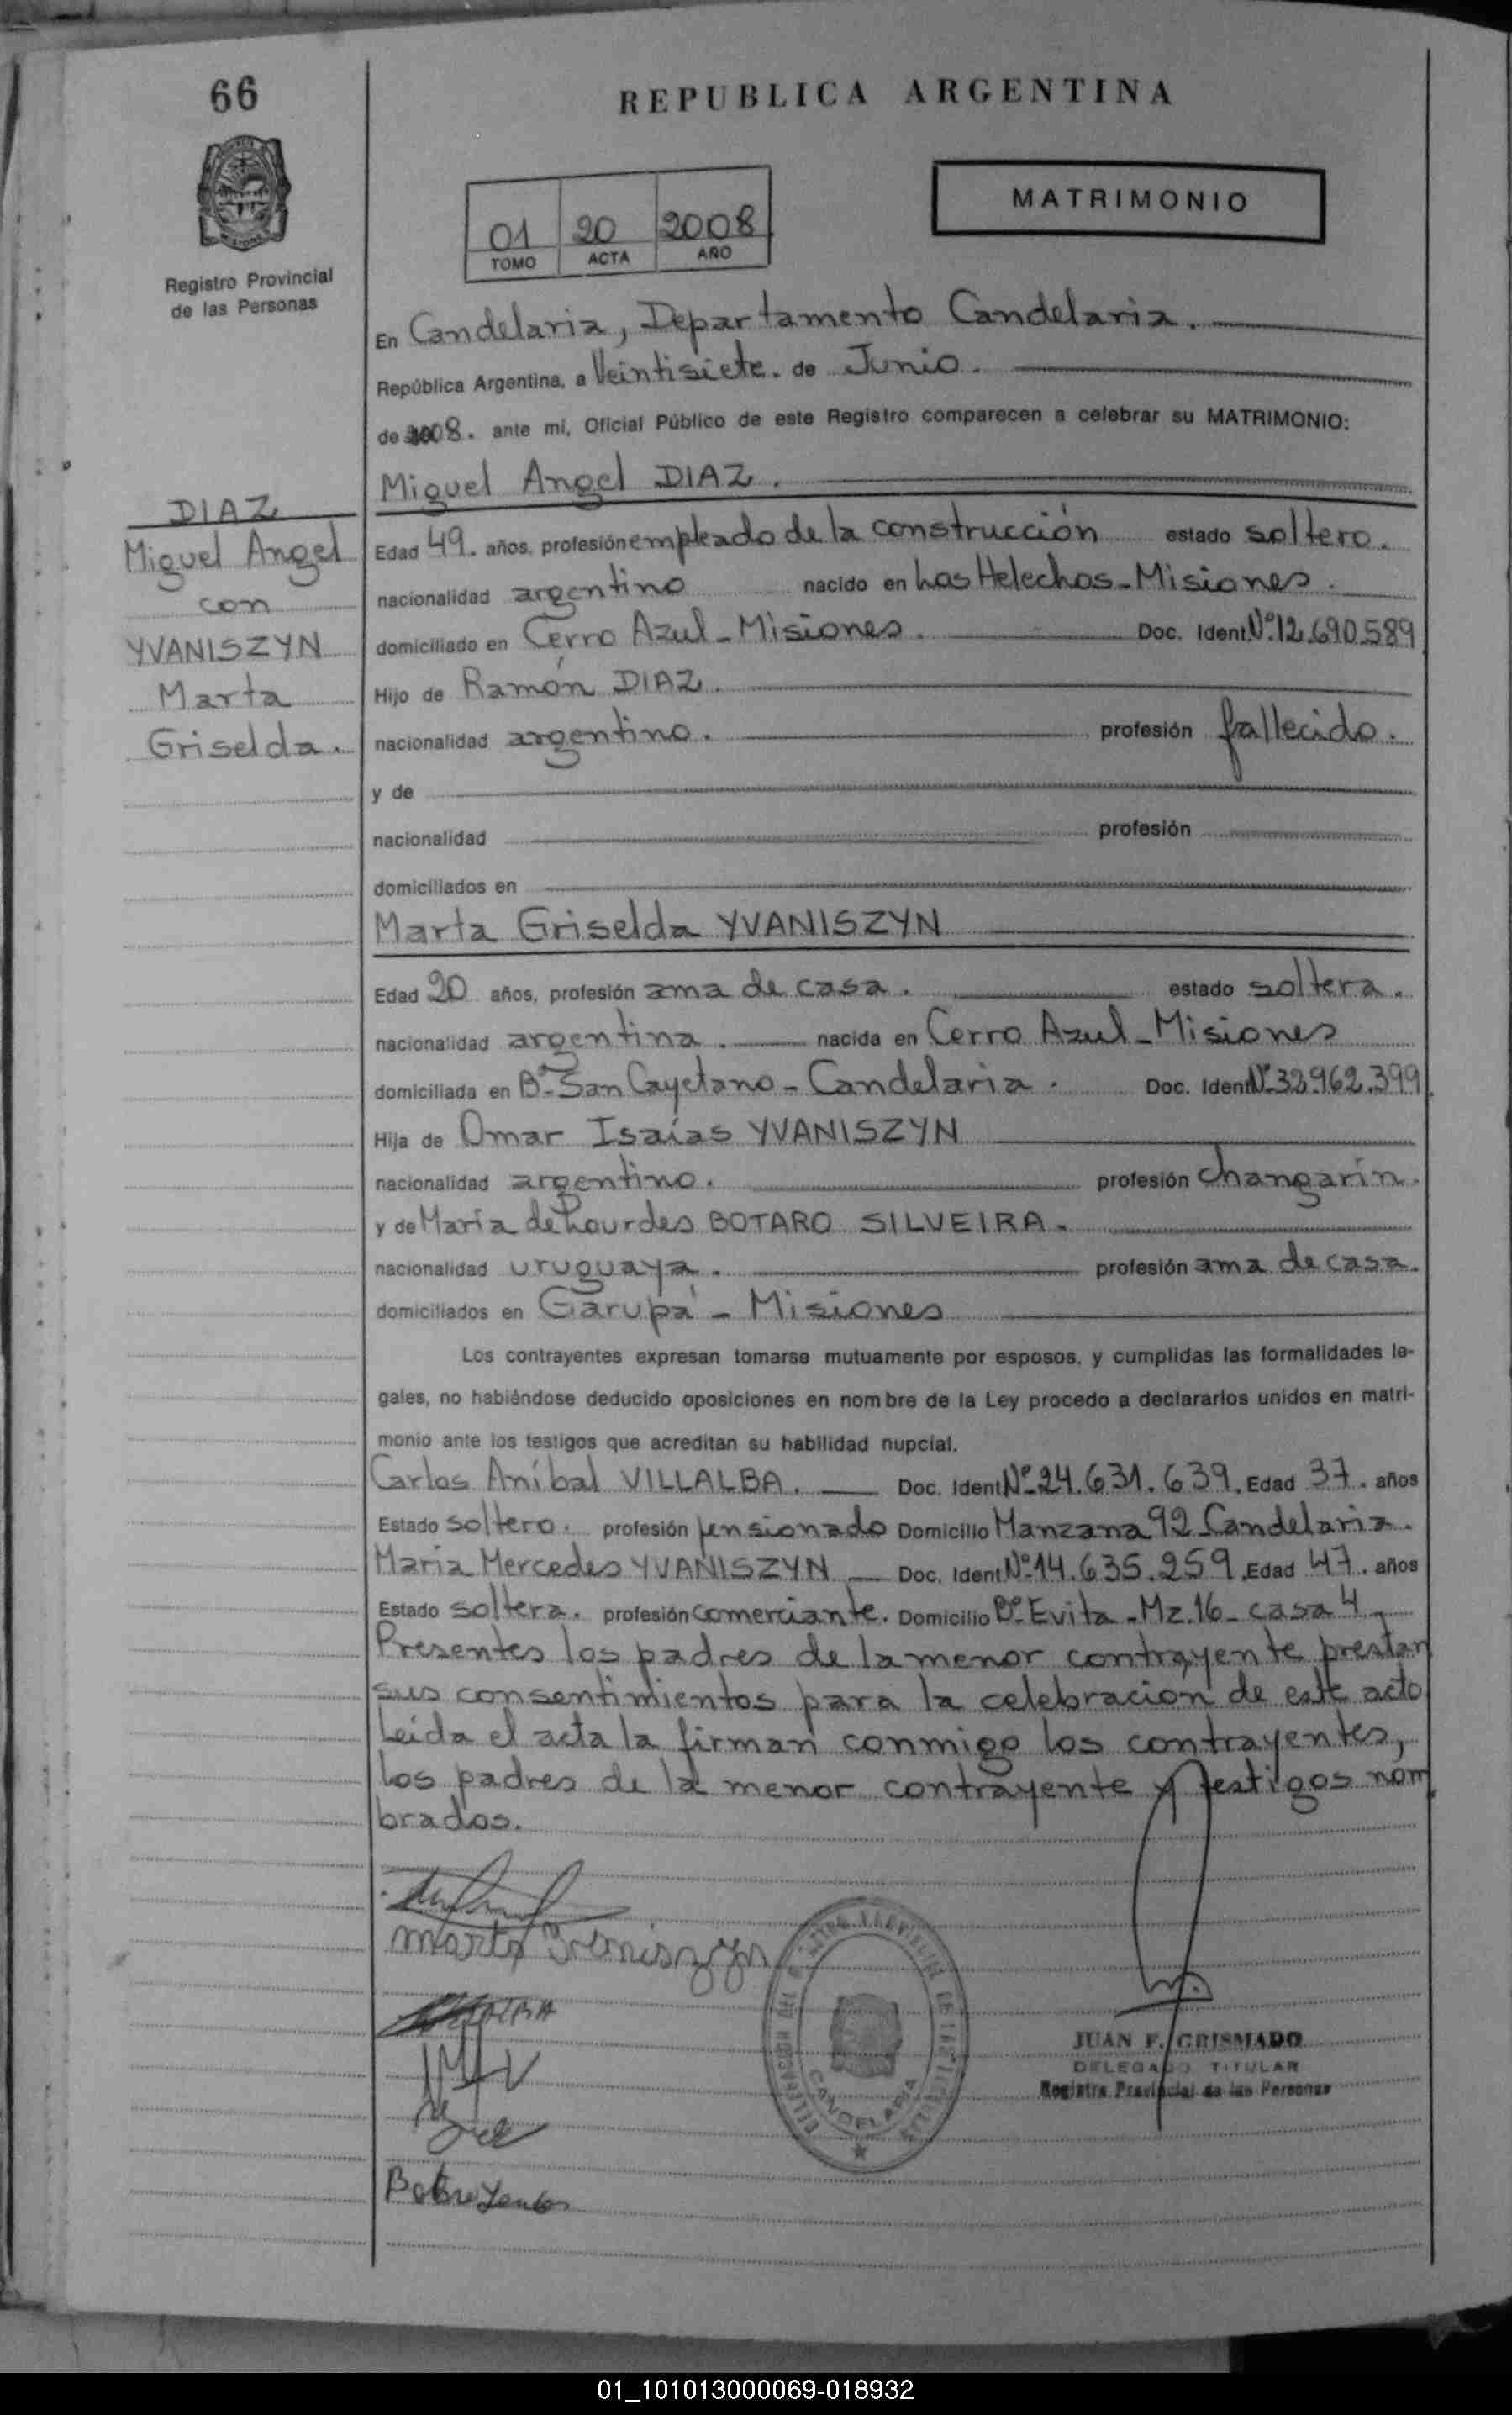 66
REPUBLICA ARGENTINA
MATRIMONIO
01 20 2008
TOMO ACTA AÑO
Registro Provincial
de las Personas
En Candelaria, Departamento Candelaria.
República Argentina, a Veintisiete. de Junio.
de 2008. ante mí, Oficial Público de este Registro comparecen a celebrar su MATRIMONIO:
Miguel Angel DIAZ.
DIAZ
Miguel Angel
con
YVANISZYN
Marta
Griselda.
Edad 49. años, profesión empleado de la construcción estado soltero.
nacionalidad argentino nacido en Los Helechos-Misiones.
domiciliado en Cerro Azul-Misiones. Doc. Ident. Nº12.690.589
Hijo de Ramón DIAZ.
nacionalidad argentino. profesión fallecido.
y de
nacionalidad profesión
domiciliados en
Marta Griselda YVANISZYN
Edad 20 años, profesión ama de casa. estado soltera.
nacionalidad argentina. nacida en Cerro Azul-Misiones
domiciliada en Bº San Cayetano-Candelaria. Doc. Ident Nº32.962.399
Hija de Omar Isaías YVANISZYN
nacionalidad argentino. profesión changarín.
y de María de Lourdes BOTARO SILVEIRA.
nacionalidad uruguaya. profesión ama de casa.
domiciliados en Garupá - Misiones
Los contrayentes expresan tomarse mutuamente por esposos, y cumplidas las formalidades le-
gales, no habiéndose deducido oposiciones en nombre de la Ley procedo a declararlos unidos en matri-
monio ante los testigos que acreditan su habilidad nupcial.
Carlos Aníbal VILLALBA. Doc. Ident Nº24.631.639. Edad 37. años
Estado soltero. profesión pensionado Domicilio Manzana 92 Candelaria.
María Mercedes YVANISZYN Doc. Ident Nº14.635.259. Edad 47. años
Estado soltera. profesión comerciante. Domicilio Bº Evita-Mz.16-casa 4
Presentes los padres de la menor contrayente prestan
sus consentimientos para la celebración de este acto
Leída el acta la firman conmigo los contrayentes,
los padres de la menor contrayente y testigos nom
brados.
JUAN F. GRISMADO
DELEGADO TITULAR
Registro Provincial de las Personas
CANDELARIA
01_101013000069-018932